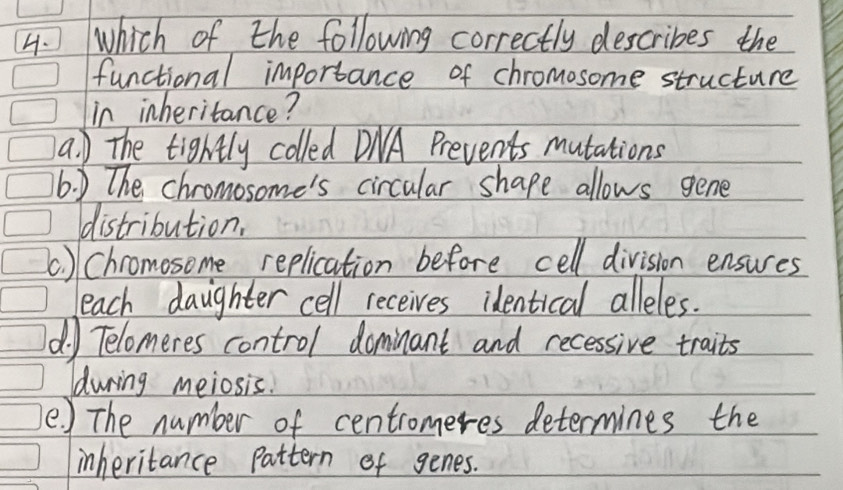 4. Which of the following correctly describes the
functional importance of chromosome structure
in inheritance?
a.) The tightly coiled DNA Prevents mutations
b.) The chromosome's circular shape allows gene
distribution.
c.) Chromosome replication before cell division ensures
each daughter cell receives identical alleles.
d.) Telomeres control dominant and recessive traits
during meiosis.
e.) The number of centromeres determines the
inheritance Pattern of genes.